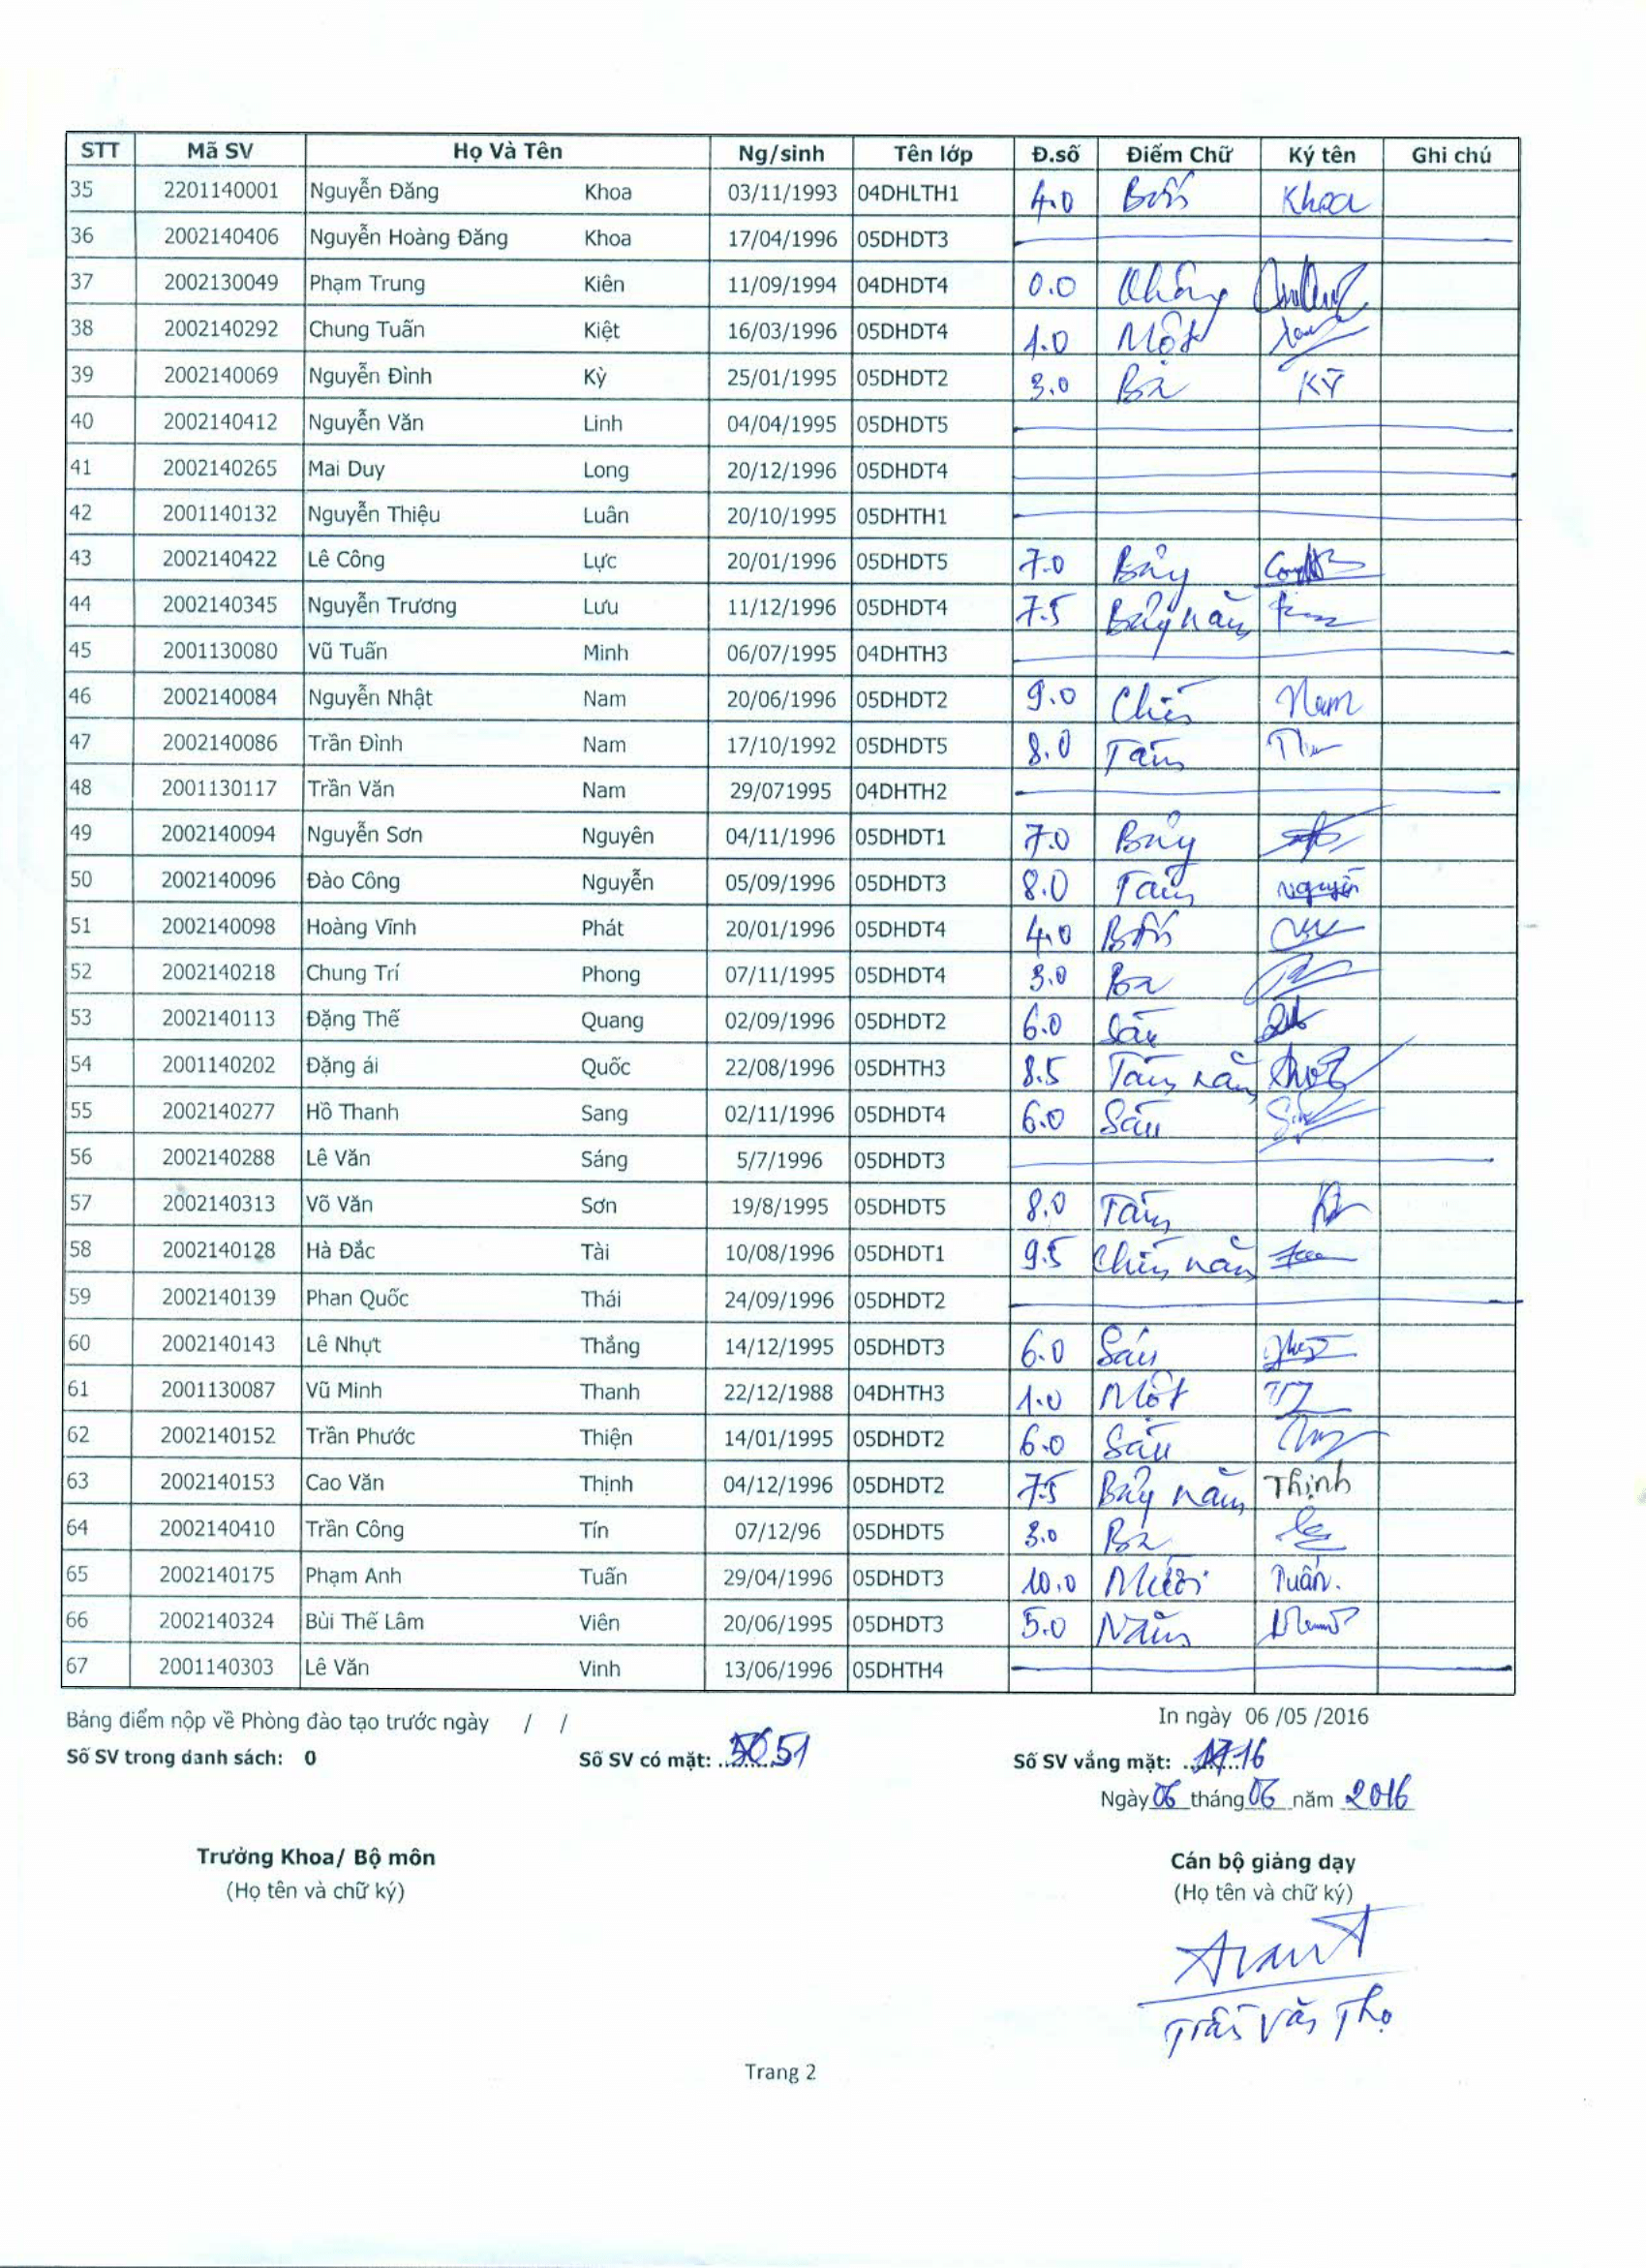 STT Mã SV Họ Và Tên Ng/sinh Tên lớp Đ.số Điểm Chữ Ký tên Ghi chú
35 2201140001 Nguyễn Đăng Khoa 03/11/1993 04DHLTH1 4.0 Bốn Khoa
36 2002140406 Nguyễn Hoàng Đăng Khoa 17/04/1996 05DHDT3
37 2002130049 Phạm Trung Kiên 11/09/1994 04DHDT4 0.0 Không
38 2002140292 Chung Tuấn Kiệt 16/03/1996 05DHDT4 1.0 Một
39 2002140069 Nguyễn Đình Kỳ 25/01/1995 05DHDT2 3.0 Ba Kỳ
40 2002140412 Nguyễn Văn Linh 04/04/1995 05DHDT5
41 2002140265 Mai Duy Long 20/12/1996 05DHDT4
42 2001140132 Nguyễn Thiệu Luân 20/10/1995 05DHTH1
43 2002140422 Lê Công Lực 20/01/1996 05DHDT5 7.0 Bảy
44 2002140345 Nguyễn Trương Lưu 11/12/1996 05DHDT4 7.5 Bảy năm
45 2001130080 Vũ Tuấn Minh 06/07/1995 04DHTH3
46 2002140084 Nguyễn Nhật Nam 20/06/1996 05DHDT2 9.0 Chín Nam
47 2002140086 Trần Đình Nam 17/10/1992 05DHDT5 8.0 Tám
48 2001130117 Trần Văn Nam 29/071995 04DHTH2
49 2002140094 Nguyễn Sơn Nguyên 04/11/1996 05DHDT1 7.0 Bảy
50 2002140096 Đào Công Nguyễn 05/09/1996 05DHDT3 8.0 Tám Nguyễn
51 2002140098 Hoàng Vĩnh Phát 20/01/1996 05DHDT4 4.0 Bốn
52 2002140218 Chung Trí Phong 07/11/1995 05DHDT4 3.0 Ba
53 2002140113 Đặng Thế Quang 02/09/1996 05DHDT2 6.0 Sáu
54 2001140202 Đặng ái Quốc 22/08/1996 05DHTH3 8.5 Tám năm
55 2002140277 Hồ Thanh Sang 02/11/1996 05DHDT4 6.0 Sáu
56 2002140288 Lê Văn Sáng 5/7/1996 05DHDT3
57 2002140313 Võ Văn Sơn 19/8/1995 05DHDT5 8.0 Tám
58 2002140128 Hà Đắc Tài 10/08/1996 05DHDT1 9.5 Chín năm
59 2002140139 Phan Quốc Thái 24/09/1996 05DHDT2
60 2002140143 Lê Nhựt Thắng 14/12/1995 05DHDT3 6.0 Sáu
61 2001130087 Vũ Minh Thanh 22/12/1988 04DHTH3 1.0 Một
62 2002140152 Trần Phước Thiện 14/01/1995 05DHDT2 6.0 Sáu
63 2002140153 Cao Văn Thịnh 04/12/1996 05DHDT2 7.5 Bảy năm Thịnh
64 2002140410 Trần Công Tín 07/12/96 05DHDT5 3.0 Ba
65 2002140175 Phạm Anh Tuấn 29/04/1996 05DHDT3 10.0 Mười Tuấn.
66 2002140324 Bùi Thế Lâm Viên 20/06/1995 05DHDT3 5.0 Năm
67 2001140303 Lê Văn Vinh 13/06/1996 05DHTH4
Bảng điểm nộp về Phòng đào tạo trước ngày / / In ngày 06 /05 /2016
Số SV trong danh sách: 0 Số SV có mặt: 51 Số SV vắng mặt: 16
Ngày 06 tháng 06 năm 2016
Trưởng Khoa/ Bộ môn Cán bộ giảng dạy
(Họ tên và chữ ký) (Họ tên và chữ ký)
Trần Văn Thọ
Trang 2